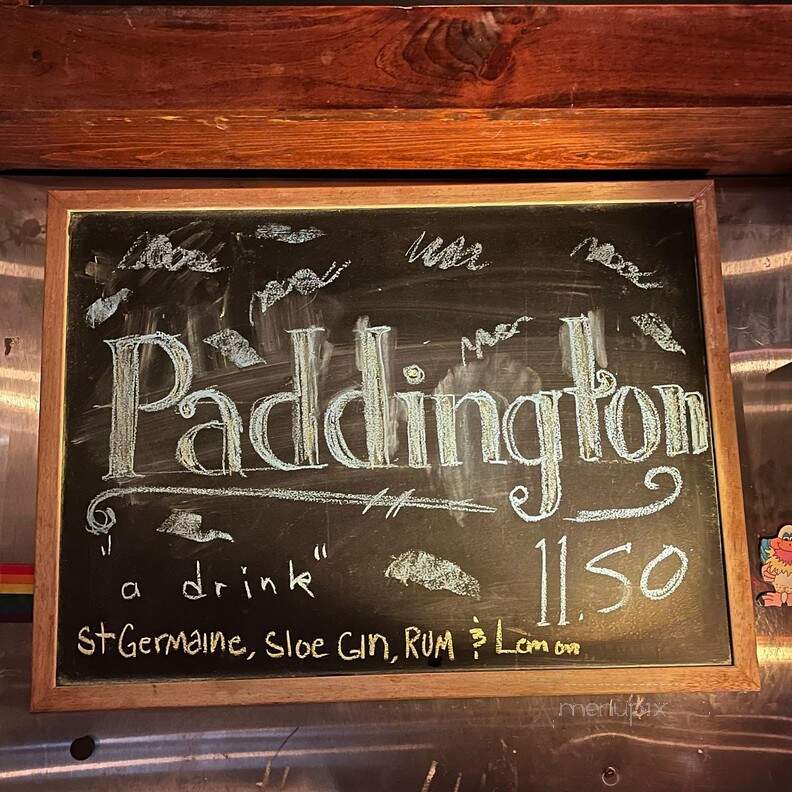 Paddington
"a drink"
11.50
St Germaine, Sloe Gin, Rum & Lemon
menupix